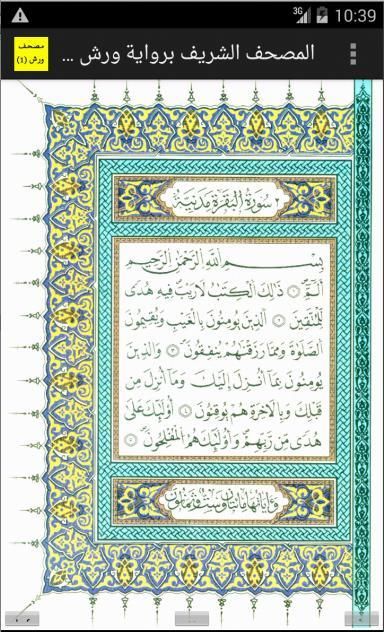 3G 10:39
مصحف
ورش (1)
المصحف الشريف برواية ورش ...
٢ سورة البقرة مدنية
بسم الله الرحمن الرحيم
ألم ۝ ذلك الكتب لا ريب فيه هدى
للمتقين ۝ الذين يومنون بالغيب ويقيمون
الصلوة ومما رزقنهم ينفقون ۝ والذين
يومنون بما أنزل إليك وما أنزل من
قبلك وبالاخرة هم يوقنون ۝ أوليك على
هدى من ربهم وأوليك هم المفلحون ۝
وءاياتها مايتان وست وثمانون